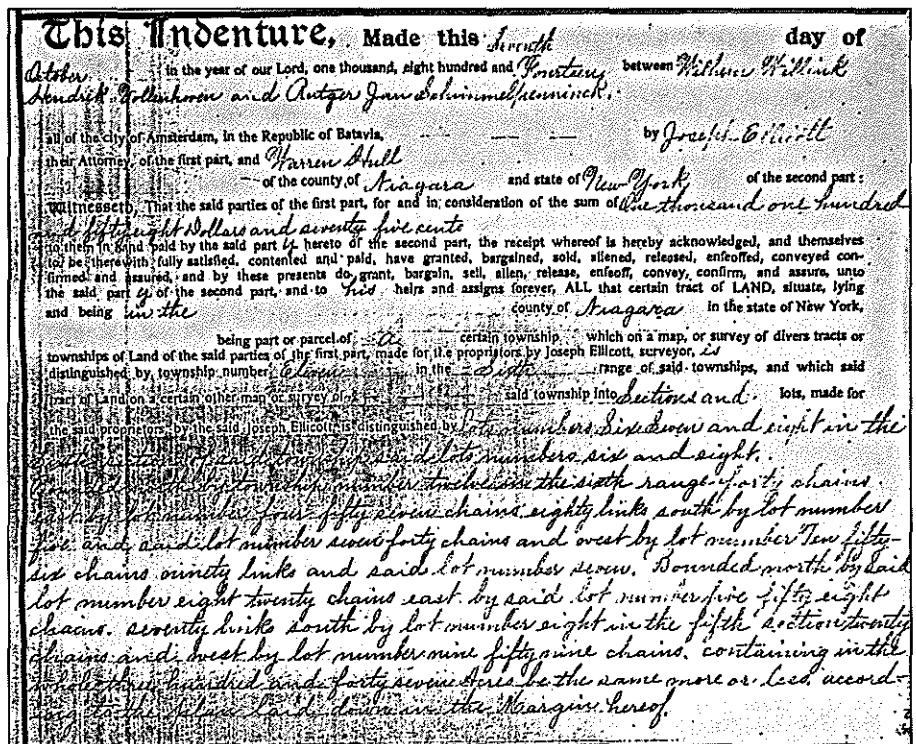 This Indenture, Made this Seventh day of
October in the year of our Lord, one thousand, eight hundred and Fourteen between Wilhem Willink
Hendrik Vollenhoven and Rutger Jan Schimmelpenninck.
all of the city of Amsterdam, in the Republic of Batavia, by Joseph Ellicott
their Attorney, of the first part, and Warren Hull
of the county of Niagara and state of New York of the second part:
Witnesseth, That the said parties of the first part, for and in consideration of the sum of One thousand one hundred
and fifty eight Dollars and seventy five cents
to them in hand paid by the said part y hereto of the second part, the receipt whereof is hereby acknowledged, and themselves
to be therewith fully satisfied, contented and paid, have granted, bargained, sold, aliened, released, enfeoffed, conveyed con-
firmed and assured, and by these presents do grant, bargain, sell, alien, release, enfeoff, convey, confirm, and assure, unto
the said part y of the second part, and to his heirs and assigns forever, ALL that certain tract of LAND, situate, lying
and being in the county of Niagara in the state of New York,
being part or parcel of a certain township which on a map, or survey of divers tracts or
townships of Land of the said parties of the first part, made for the propritors by Joseph Ellicott, surveyor, is
distinguished by township number Eleven in the Sixth range of said townships, and which said
tract of Land on a certain other map or survey of said township into Sections and lots, made for
the said propritors, by the said Joseph Ellicott, is distinguished by lots numbers Six Seven and eight in the
said lots numbers six and eight.
Bounded north by township number twelve in the sixth range forty chains
east by lot number four fifty seven chains eighty links south by lot number
five and said lot number seven forty chains and west by lot number Ten fifty-
six chains ninety links and said lot number seven. Bounded north by said
lot number eight twenty chains east by said lot number five fifty eight
chains. seventy links south by lot number eight in the fifth section twenty
chains and west by lot number nine fifty nine chains. containing in the
whole three hundred and forty seven Acres be the same more or less accord-
ing to the plan laid down in the Margin hereof.